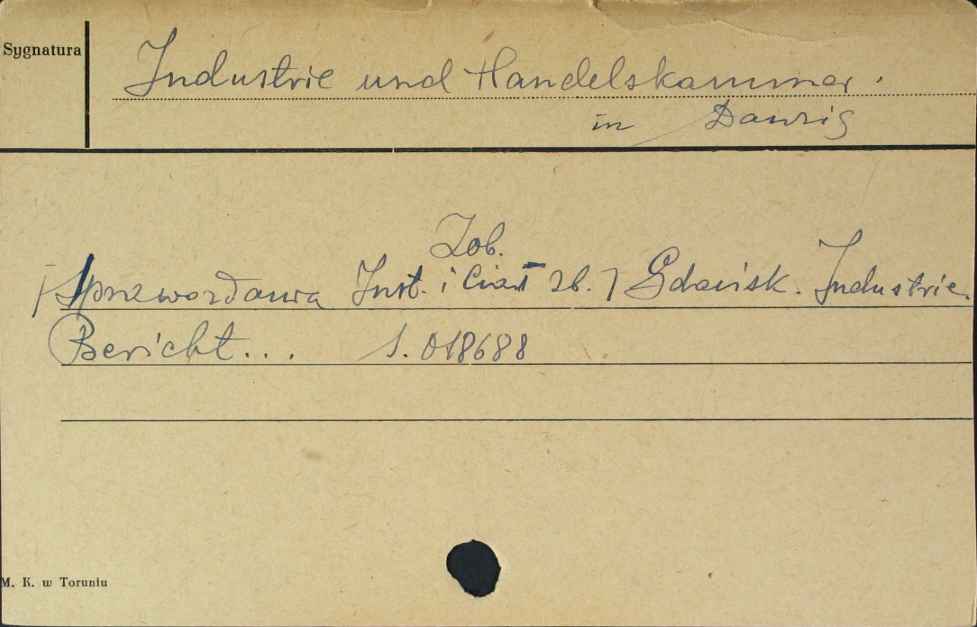 Sygnatura
Industrie und Handelskammer.
in Danzig
Zob.
Sprawozdawa Inst. i Ciał zb. 7 Gdańsk. Industrie.
Bericht... S. 018688
M. K. w Toruniu